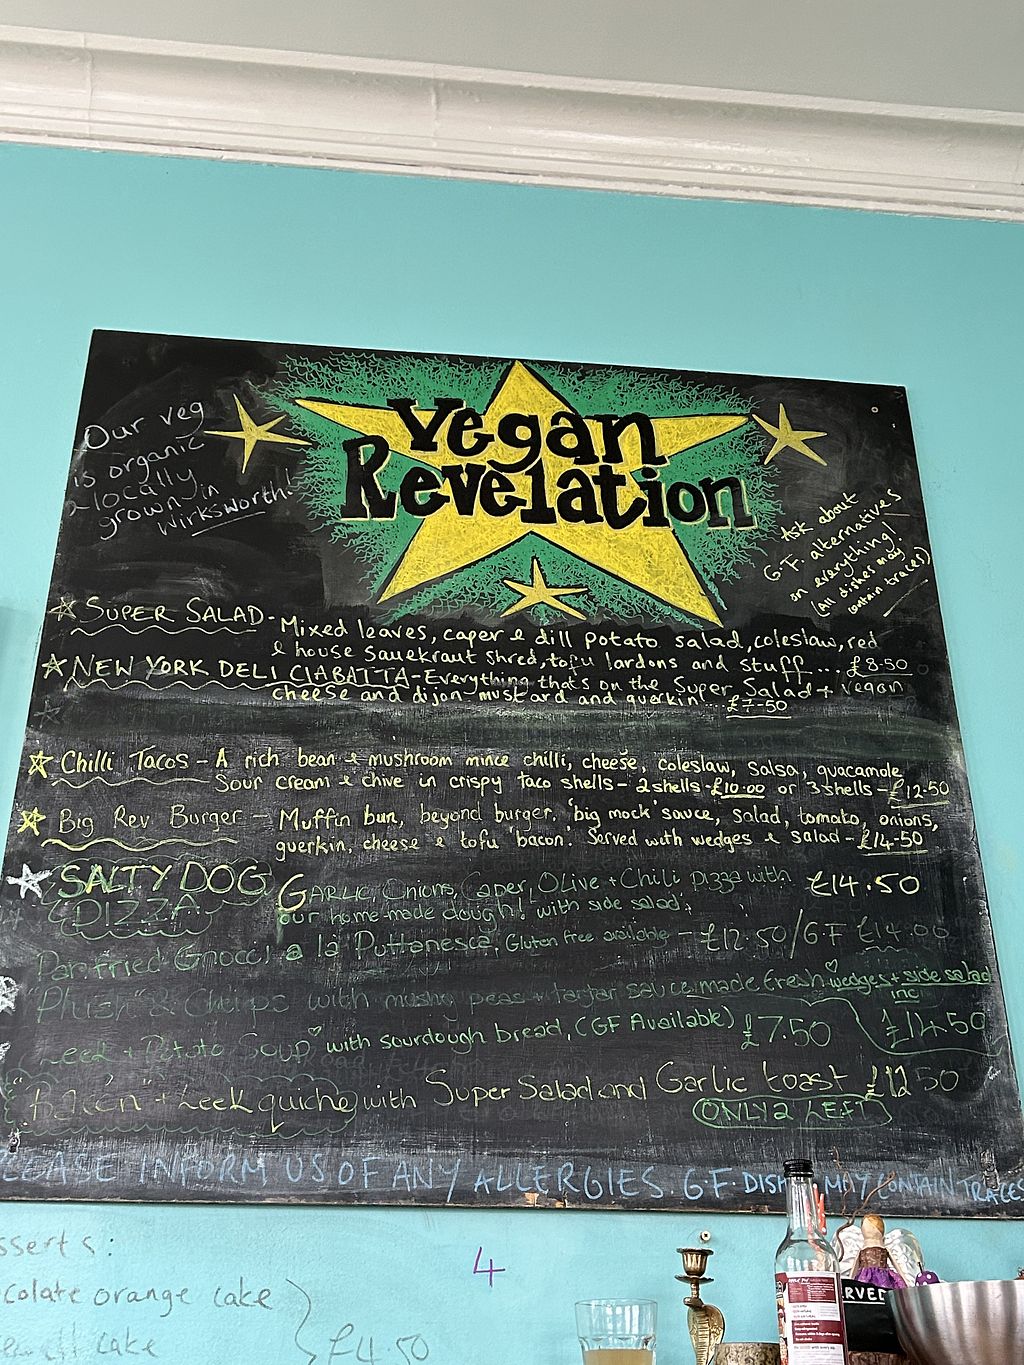 Vegan
Revelation
Our veg
is organic
& locally
grown in
Wirksworth!
Ask about
G.F. alternatives
on everything!
(All dishes may
contain traces)
SUPER SALAD - Mixed leaves, caper & dill potato salad, coleslaw, red
& house sauekraut shred, tofu lardons and stuff... £8.50
NEW YORK DELI CIABATTA - Everything that's on the Super Salad + vegan
cheese and dijon mustard and guerkin... £7-50
Chilli Tacos - A rich bean & mushroom mince chilli, cheese, coleslaw, salsa, guacamole
Sour cream & chive in crispy taco shells - 2 shells - £10.00 or 3 shells - £12.50
Big Rev Burger - Muffin bun, beyond burger, 'big mock' sauce, salad, tomato, onions,
guerkin, cheese & tofu 'bacon'. Served with wedges & salad - £14-50
SALTY DOG PIZZA GARLIC, Onions, Caper, OLive + Chili pizza with £14.50
our home-made dough! with side salad.
Panfried Gnocci a la Puttanesca, Gluten free available - £12.50/GF £14.00
"Phish" & Chips with mushy peas + tartar sauce made fresh wedges + side salad
inc £14.50
Leek + Potato Soup with sourdough bread, (GF Available) £7.50
"Bacon" + Leek quiche with Super Salad and Garlic toast £12.50
ONLY 2 LEFT
PLEASE INFORM US OF ANY ALLERGIES. GF. DISHES MAY CONTAIN TRACES
sserts:
colate orange cake
cake
£4.50
4
RVED